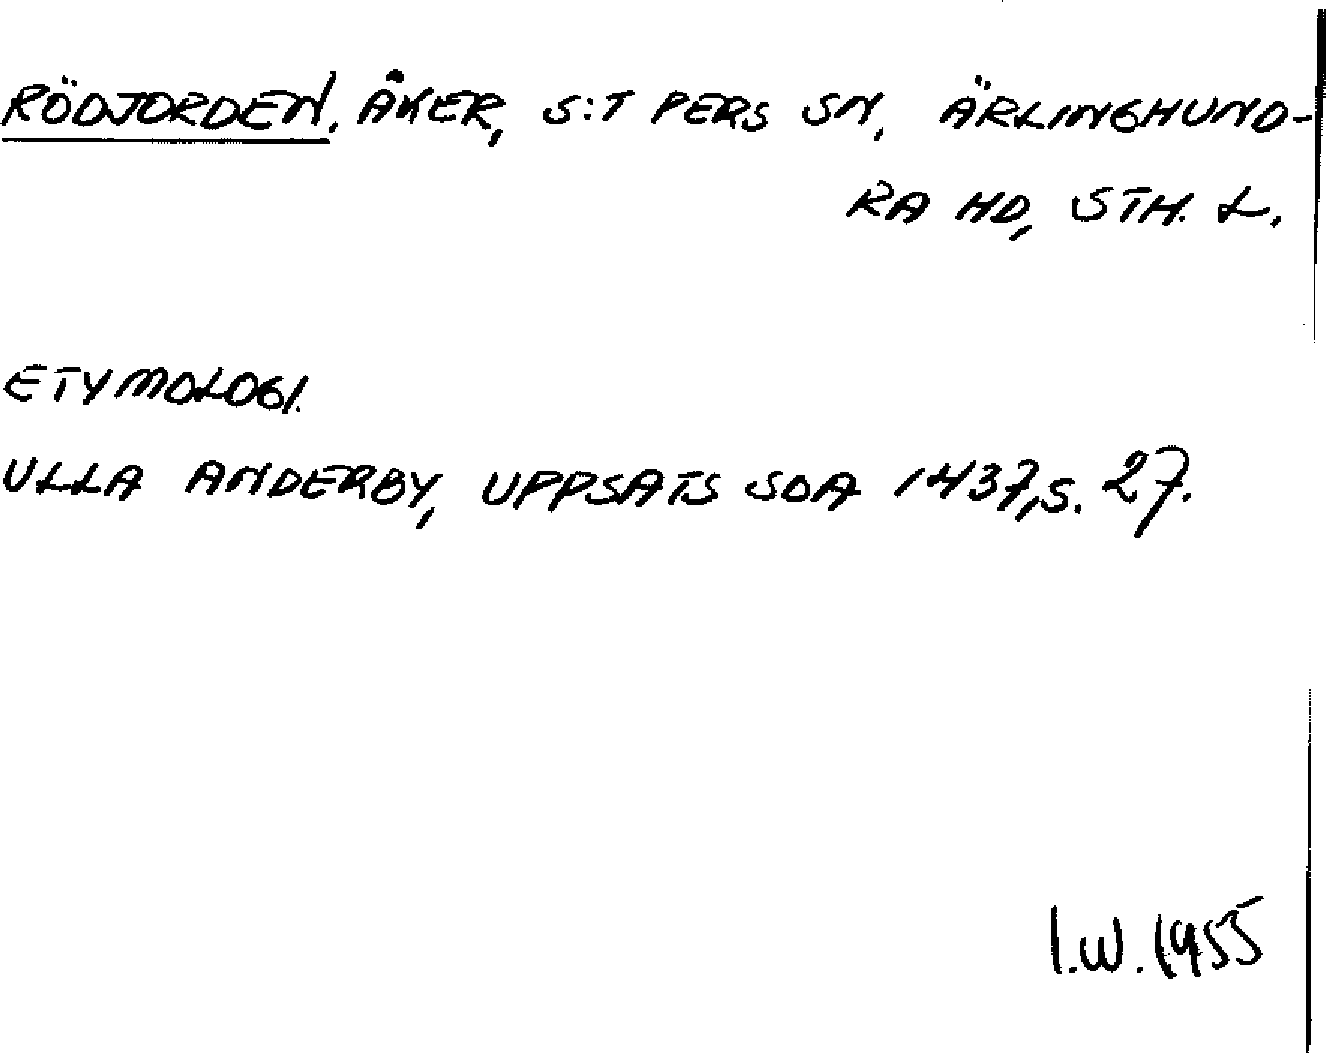 RÖDJORDEN, ÅKER, S:T PERS SN, ÄRLINGHUND-
RA HD, STH. L.
ETYMOLOGI.
ULLA ANDERBY, UPPSATS SOA 1437, S. 27.
I.W. 1955